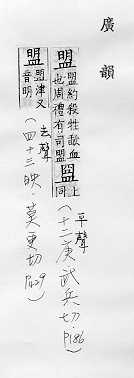 廣韻
盟盟約殺牲歃血
也周禮有司盟𥁰上同
平聲
(十二庚.武兵切.P186)
盟盟津又
音明
去聲
(四十三映.莫更切.P429)